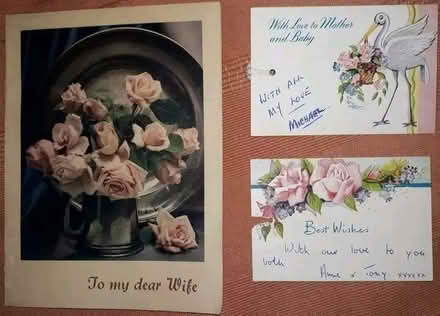 To my dear Wife
With Love to Mother
and Baby
WITH ALL
MY LOVE
MICHAEL
Best Wishes
With our love to you
both
Anne x Tony. xxxxxx